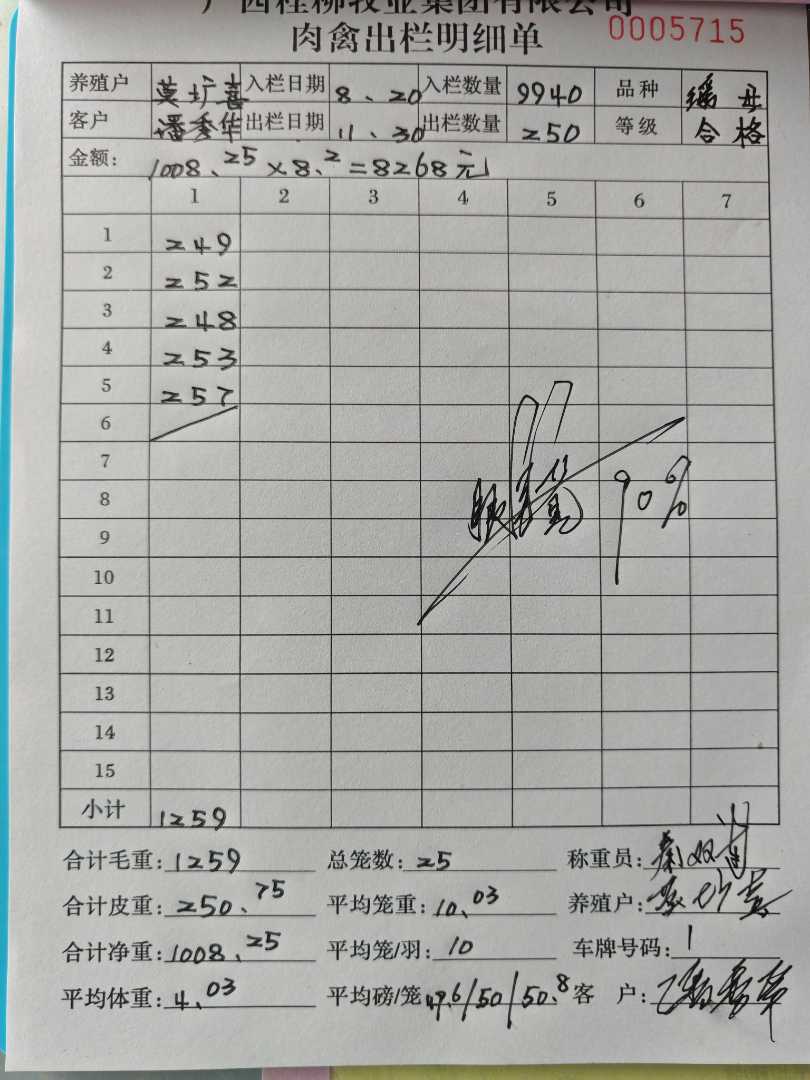 广西桂柳牧业集团有限公司
肉禽出栏明细单 0005715
养殖户 莫圹喜 入栏日期 8、20 入栏数量 9940 品种 瑶母
客户 潘秀华 出栏日期 11、30 出栏数量 250 等级 合格
金额: 1008、25×8、2=8268元
1 2 3 4 5 6 7
1 249
2 252
3 248
4 253
5 257
6
7
8 90%
9
10
11
12
13
14
15
小计 1259
合计毛重: 1259 总笼数: 25 称重员:
合计皮重: 250、75 平均笼重: 10、03 养殖户:
合计净重: 1008、25 平均笼/羽: 10 车牌号码: 1
平均体重: 4、03 平均磅/笼 49.6/50/50.8 客 户: 潘秀华